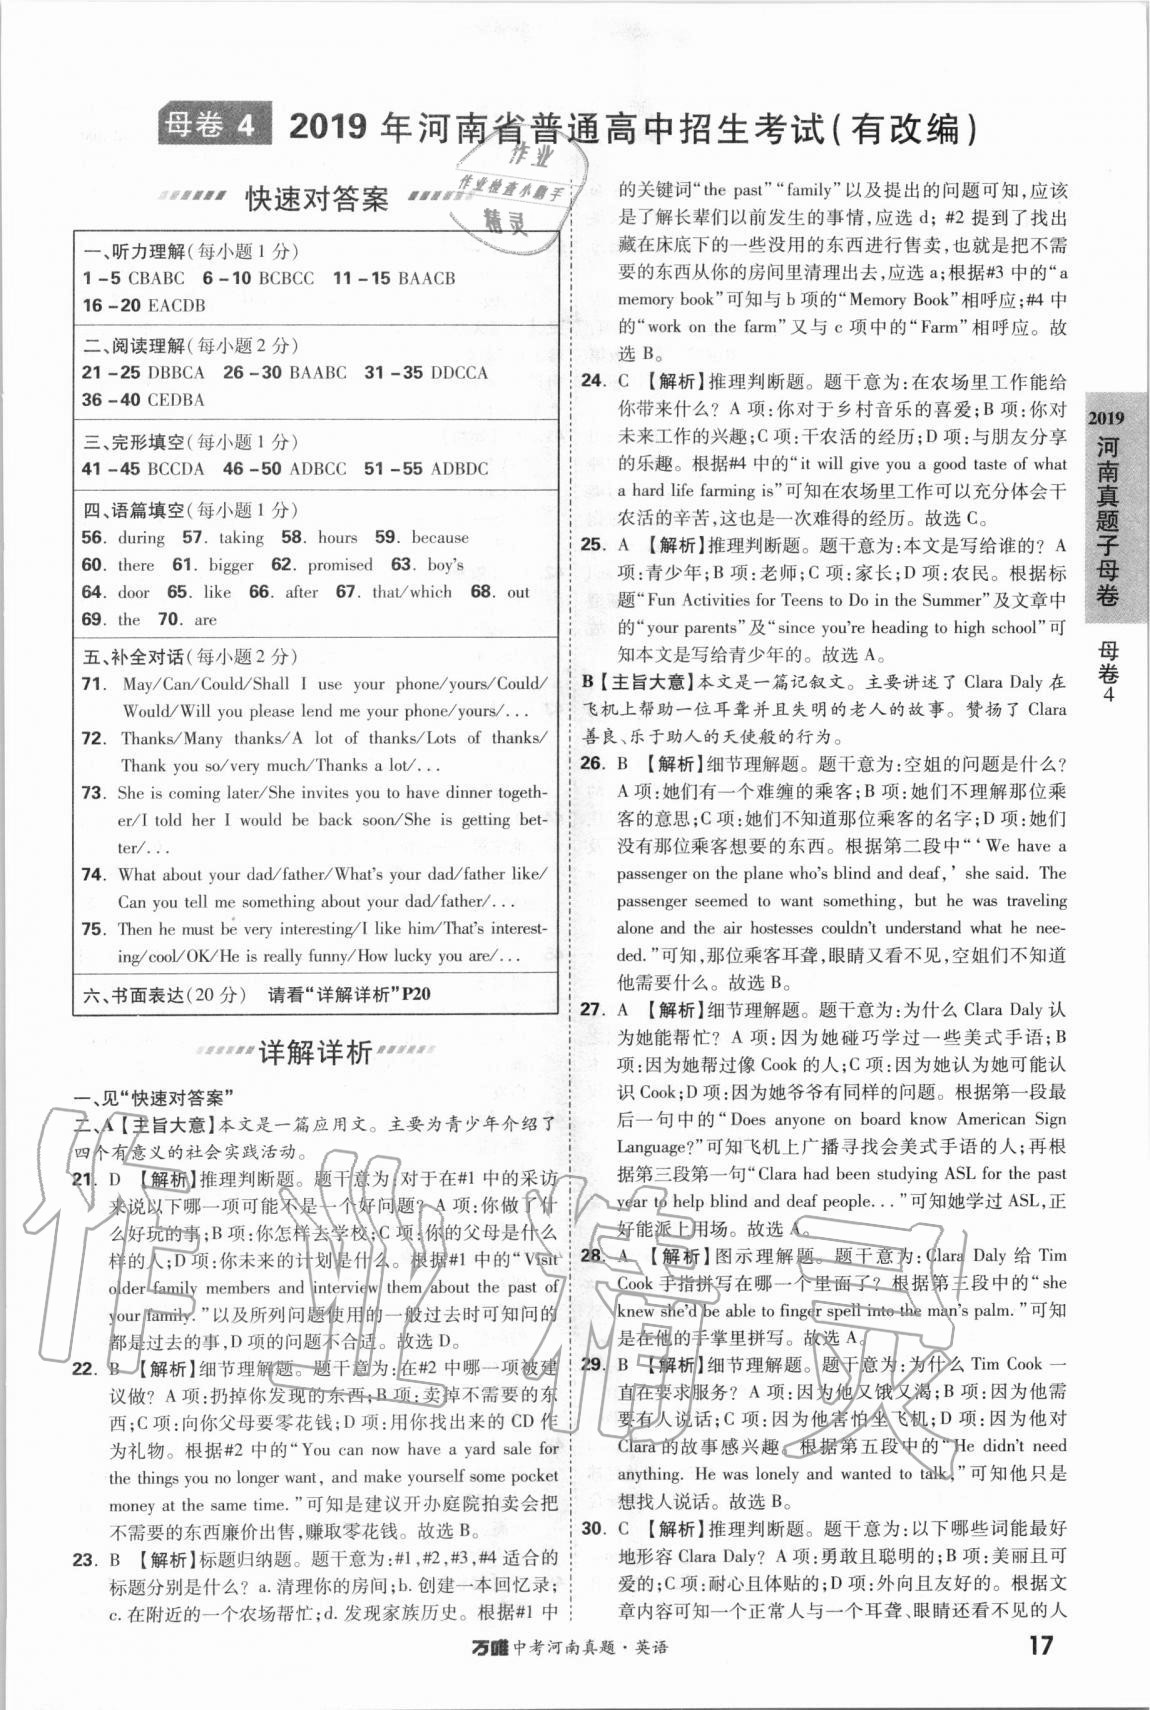 母卷 4 2019 年河南省普通高中招生考试(有改编)
作业
作业检查小助手
精灵
快速对答案
一、听力理解(每小题 1 分)
1-5 CBABC 6-10 BCBCC 11-15 BAACB
16-20 EACDB
二、阅读理解(每小题 2 分)
21-25 DBBCA 26-30 BAABC 31-35 DDCCA
36-40 CEDBA
三、完形填空(每小题 1 分)
41-45 BCCDA 46-50 ADBCC 51-55 ADBDC
四、语篇填空(每小题 1 分)
56. during 57. taking 58. hours 59. because
60. there 61. bigger 62. promised 63. boy's
64. door 65. like 66. after 67. that/which 68. out
69. the 70. are
五、补全对话(每小题 2 分)
71. May/Can/Could/Shall I use your phone/yours/Could/
Would/Will you please lend me your phone/yours/...
72. Thanks/Many thanks/A lot of thanks/Lots of thanks/
Thank you so/very much/Thanks a lot/...
73. She is coming later/She invites you to have dinner togeth-
er/I told her I would be back soon/She is getting bet-
ter/...
74. What about your dad/father/What's your dad/father like/
Can you tell me something about your dad/father/...
75. Then he must be very interesting/I like him/That's interest-
ing/cool/OK/He is really funny/How lucky you are/...
六、书面表达(20 分) 请看“详解详析”P20
详解详析
一、见“快速对答案”
二、A【主旨大意】本文是一篇应用文。主要为青少年介绍了
四个有意义的社会实践活动。
21. D 【解析】推理判断题。题干意为:对于在#1 中的采访
来说以下哪一项可能不是一个好问题? A 项:你做了什
么好玩的事;B 项:你怎样去学校;C 项:你的父母是什么样
的人;D 项:你未来的计划是什么。根据#1 中的“Visit
older family members and interview them about the past of
your family.”以及所列问题使用的一般过去时可知问的
都是过去的事,D 项的问题不合适。故选 D。
22. B 【解析】细节理解题。题干意为:在#2 中哪一项被建
议做? A 项:扔掉你发现的东西;B 项:卖掉不需要的东
西;C 项:向你父母要零花钱;D 项:用你找出来的 CD 作
为礼物。根据#2 中的“You can now have a yard sale for
the things you no longer want, and make yourself some pocket
money at the same time.”可知是建议开办庭院拍卖会把
不需要的东西廉价出售,赚取零花钱。故选 B。
23. B 【解析】标题归纳题。题干意为:#1,#2,#3,#4 适合的
标题分别是什么? a. 清理你的房间;b. 创建一本回忆录;
c. 在附近的一个农场帮忙;d. 发现家族历史。根据#1 中
的关键词“the past”“family”以及提出的问题可知,应该
是了解长辈们以前发生的事情,应选 d; #2 提到了找出
藏在床底下的一些没用的东西进行售卖,也就是把不需
要的东西从你的房间里清理出去,应选 a;根据#3 中的“a
memory book”可知与 b 项的“Memory Book”相呼应;#4 中
的“work on the farm”又与 c 项中的“Farm”相呼应。故
选 B。
24. C 【解析】推理判断题。题干意为:在农场里工作能给
你带来什么? A 项:你对于乡村音乐的喜爱;B 项:你对
未来工作的兴趣;C 项:干农活的经历;D 项:与朋友分享
的乐趣。根据#4 中的“it will give you a good taste of what
a hard life farming is”可知在农场里工作可以充分体会干
农活的辛苦,这也是一次难得的经历。故选 C。
25. A 【解析】推理判断题。题干意为:本文是写给谁的? A
项:青少年;B 项:老师;C 项:家长;D 项:农民。根据标
题“Fun Activities for Teens to Do in the Summer”及文章中
的“your parents”及“since you're heading to high school”可
知本文是写给青少年的。故选 A。
B【主旨大意】本文是一篇记叙文。主要讲述了 Clara Daly 在
飞机上帮助一位耳聋并且失明的老人的故事。赞扬了 Clara
善良、乐于助人的天使般的行为。
26. B 【解析】细节理解题。题干意为:空姐的问题是什么?
A 项:她们有一个难缠的乘客;B 项:她们不理解那位乘
客的意思;C 项:她们不知道那位乘客的名字;D 项:她们
没有那位乘客想要的东西。根据第二段中“‘We have a
passenger on the plane who's blind and deaf,’ she said. The
passenger seemed to want something, but he was traveling
alone and the air hostesses couldn't understand what he nee-
ded.”可知,那位乘客耳聋,眼睛又看不见,空姐们不知道
他需要什么。故选 B。
27. A 【解析】细节理解题。题干意为:为什么 Clara Daly 认
为她能帮忙? A 项:因为她碰巧学过一些美式手语;B
项:因为她帮过像 Cook 的人;C 项:因为她认为她可能认
识 Cook;D 项:因为她爷爷有同样的问题。根据第一段最
后一句中的“Does anyone on board know American Sign
Language?”可知飞机上广播寻找会美式手语的人;再根
据第三段第一句“Clara had been studying ASL for the past
year to help blind and deaf people...”可知她学过 ASL,正
好能派上用场。故选 A。
28. A 【解析】图示理解题。题干意为:Clara Daly 给 Tim
Cook 手指拼写在哪一个里面了? 根据第三段中的“she
knew she'd be able to finger spell into the man's palm.”可知
是在他的手掌里拼写。故选 A。
29. B 【解析】细节理解题。题干意为:为什么 Tim Cook 一
直在要求服务? A 项:因为他又饿又渴;B 项:因为他需
要有人说话;C 项:因为他害怕坐飞机;D 项:因为他对
Clara 的故事感兴趣。根据第五段中的“He didn't need
anything. He was lonely and wanted to talk,”可知他只是
想找人说话。故选 B。
30. C 【解析】推理判断题。题干意为:以下哪些词能最好
地形容 Clara Daly? A 项:勇敢且聪明的;B 项:美丽且可
爱的;C 项:耐心且体贴的;D 项:外向且友好的。根据文
章内容可知一个正常人与一个耳聋、眼睛还看不见的人
2019
河南真题子母卷
母卷 4
作业精灵
万唯中考河南真题·英语
17